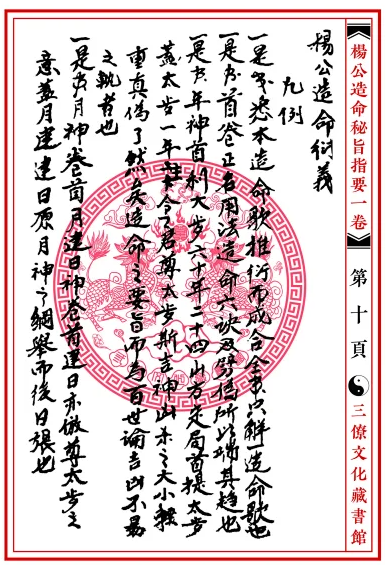 楊公造命秘旨指要一卷
第十頁
三僚文化藏書館
楊公造命衍義
凡例
一是書悉本造命歌推衍而成合全書只解一造命歌也
一是書首卷正名用法造命六訣及 偽所以端其趨也
一是書年神首列太歲六十年二十四山方定局首提太歲
蓋太歲一年主令君尊太歲斯吉神凶 之大小輕
重真偽了然矣造命之要旨而為百世論吉凶不易
之執者也
一是書月神卷首月建日神卷首建日亦倣尊太歲之
意蓋月建建日原月神之綱舉而後目張也